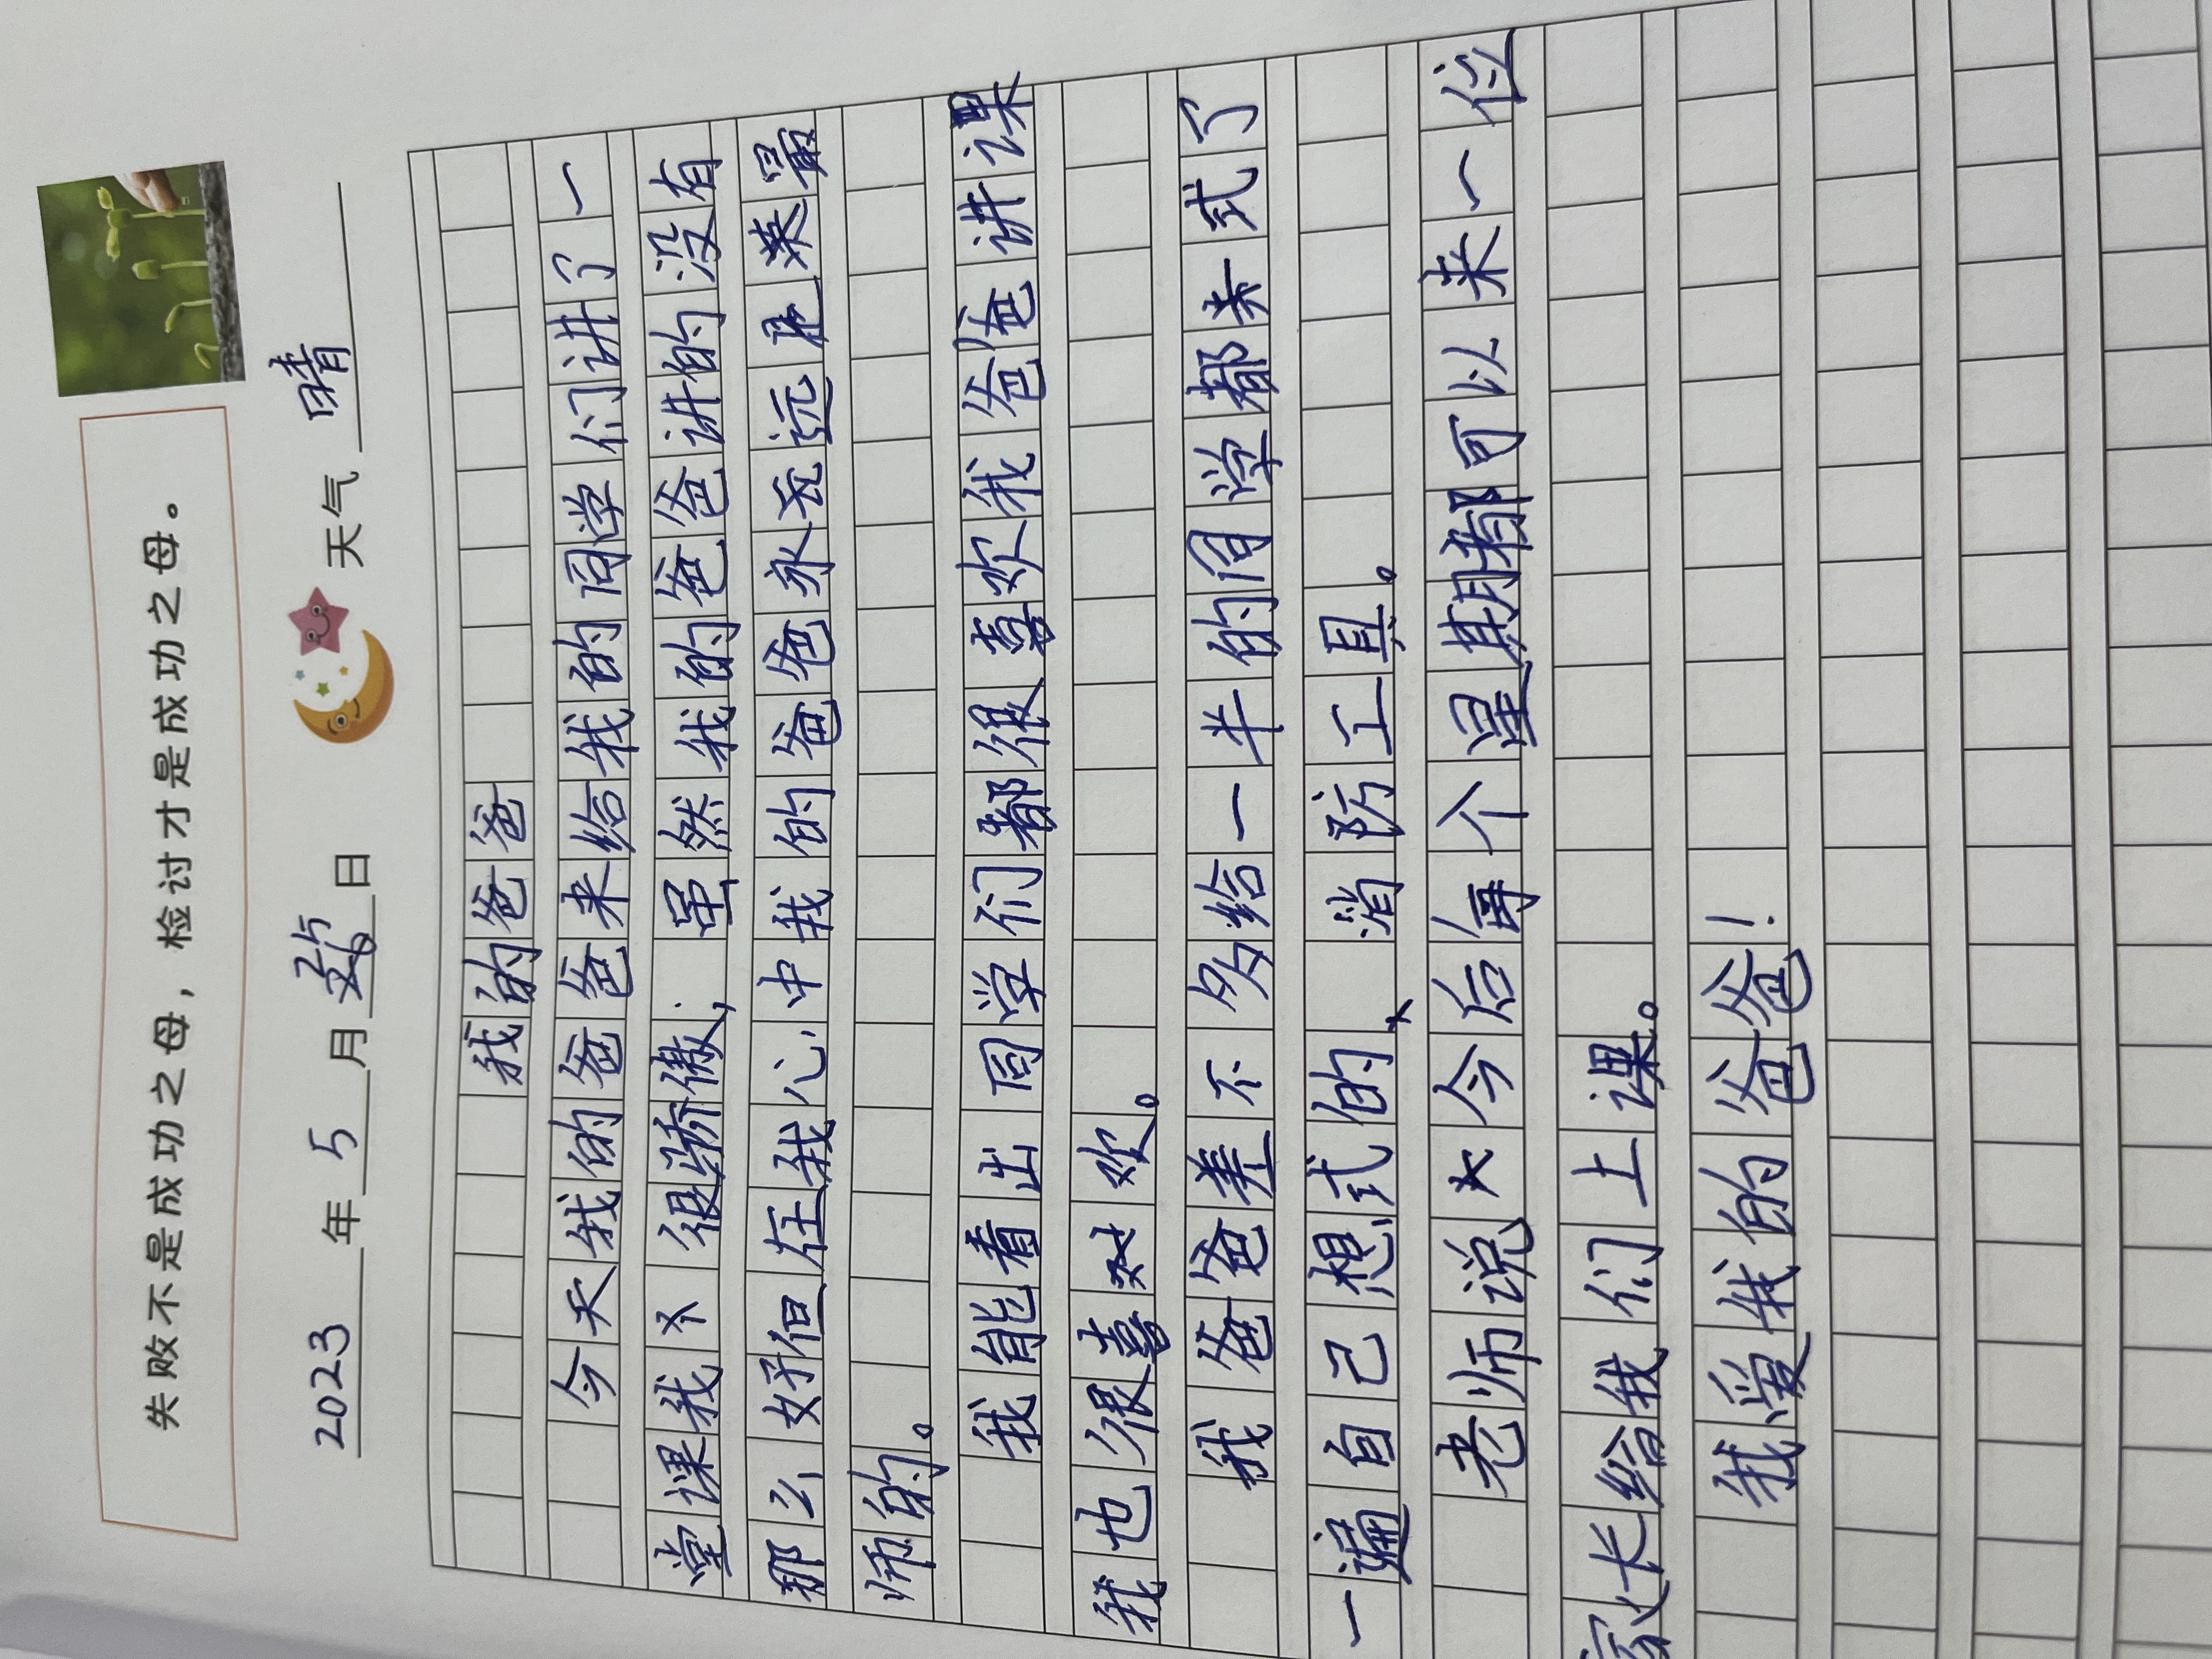 失败不是成功之母，检讨才是成功之母。
2023年5月25日 天气 晴
我的爸爸
今天我的爸爸来给我的同学们讲了一
堂课我又很骄傲；虽然我的爸爸讲的没有
那么好但在我心中我的爸爸永远是最
师的。
我能看出同学们都很喜欢我爸爸讲课
我也很喜欢。
我爸爸差不多给一半的同学都来式了
一遍自己想式的、消防工具。
老师说今后每个星期都可以来一位
家长给我们上课。
我爱我的爸爸！